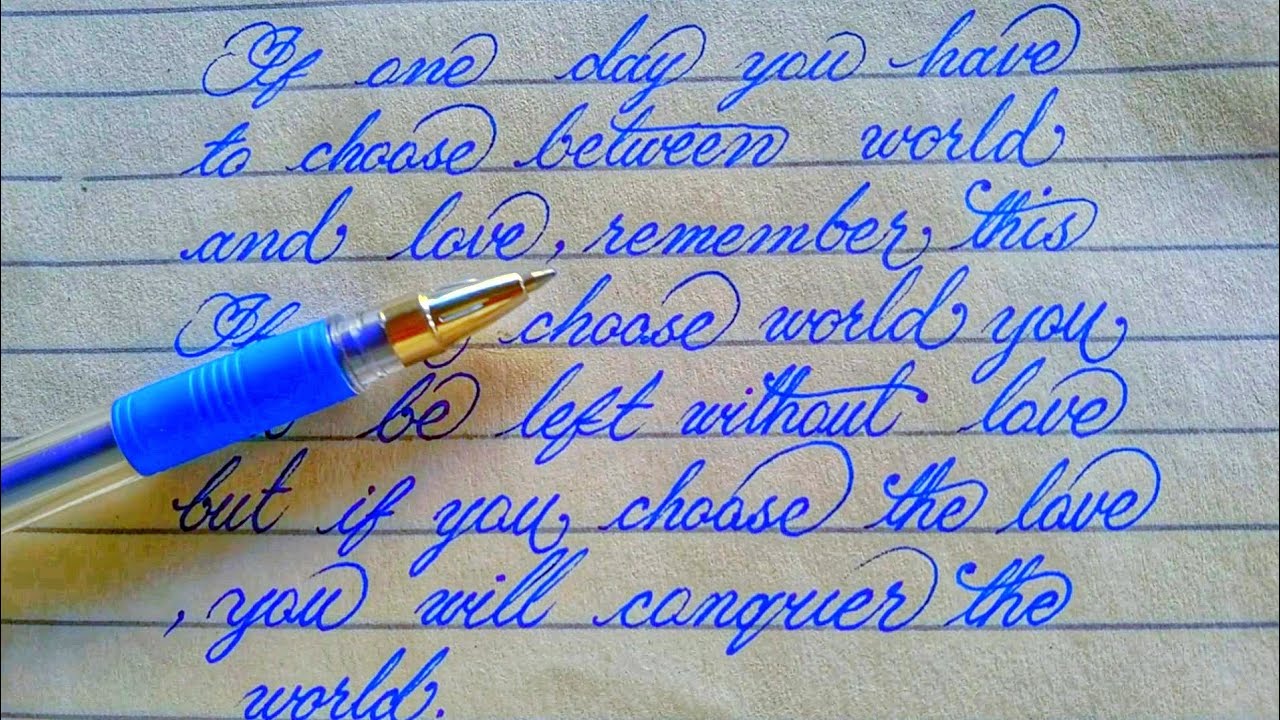 If one day you have
to choose between world
and love, remember this
If choose world you
be left without love
but if you choose the love
, you will conquer the
world.